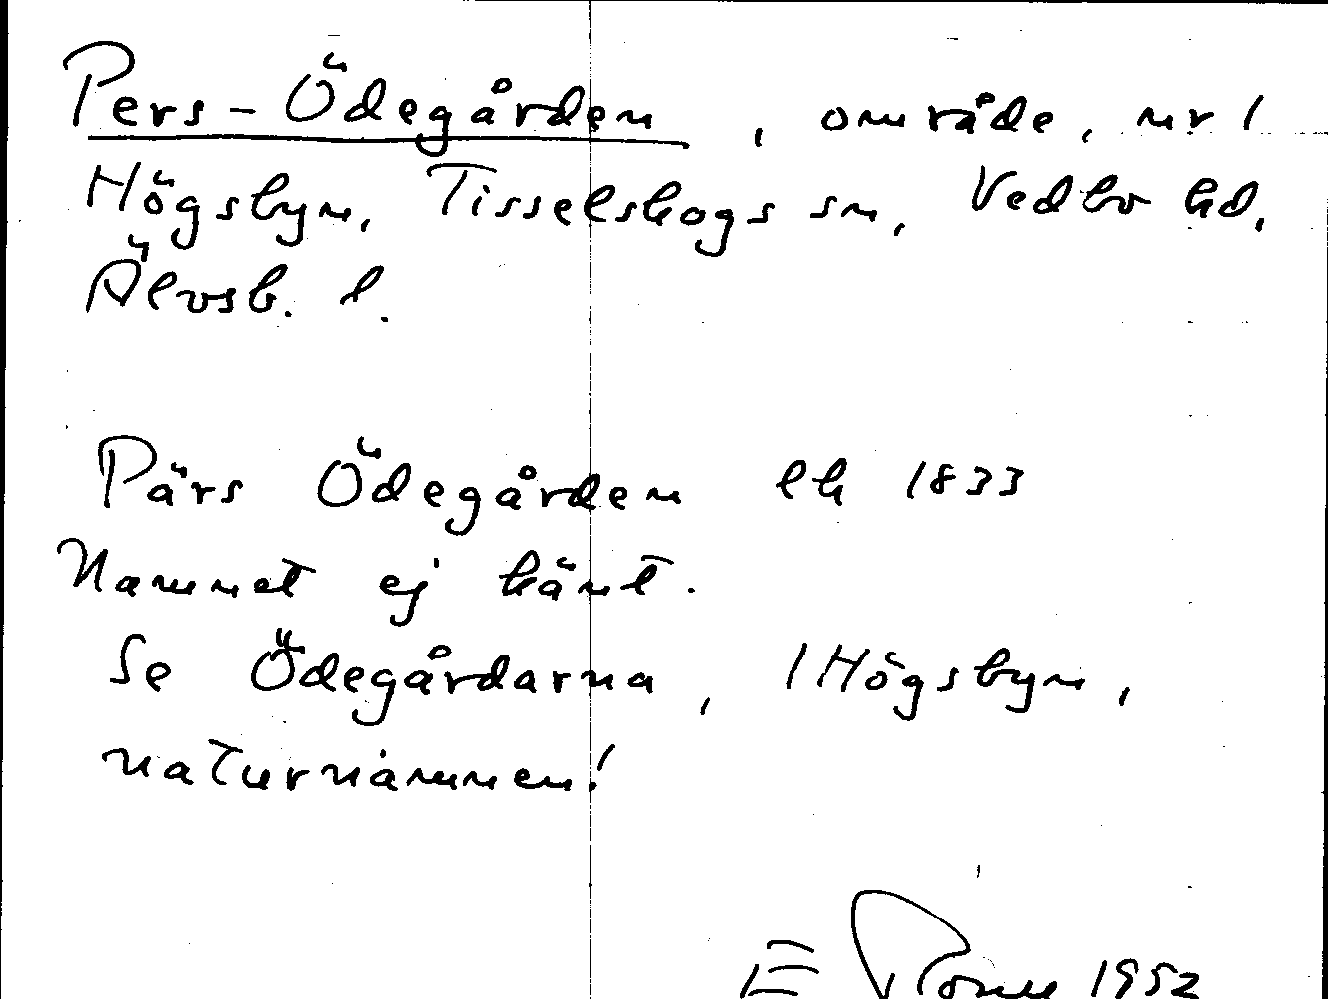 Pers-Ödegården, område, nr 1
Högsbyn, Tisselskogs sn, Vedbo hd,
Älvsb. l.
Pärs Ödegården lh 1833
Namnet ej känt.
Se Ödegårdarna, 1 Högsbyn,
naturnamnen!
E 1952